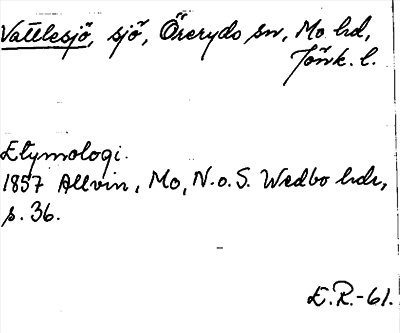 Vattlesjö, sjö, Öreryds sn, Mo hd,
Jönk. l.
Etymologi.
1857 Allvin, Mo, N. o. S. Wedbo hdr,
s. 36.
E. R. -61.